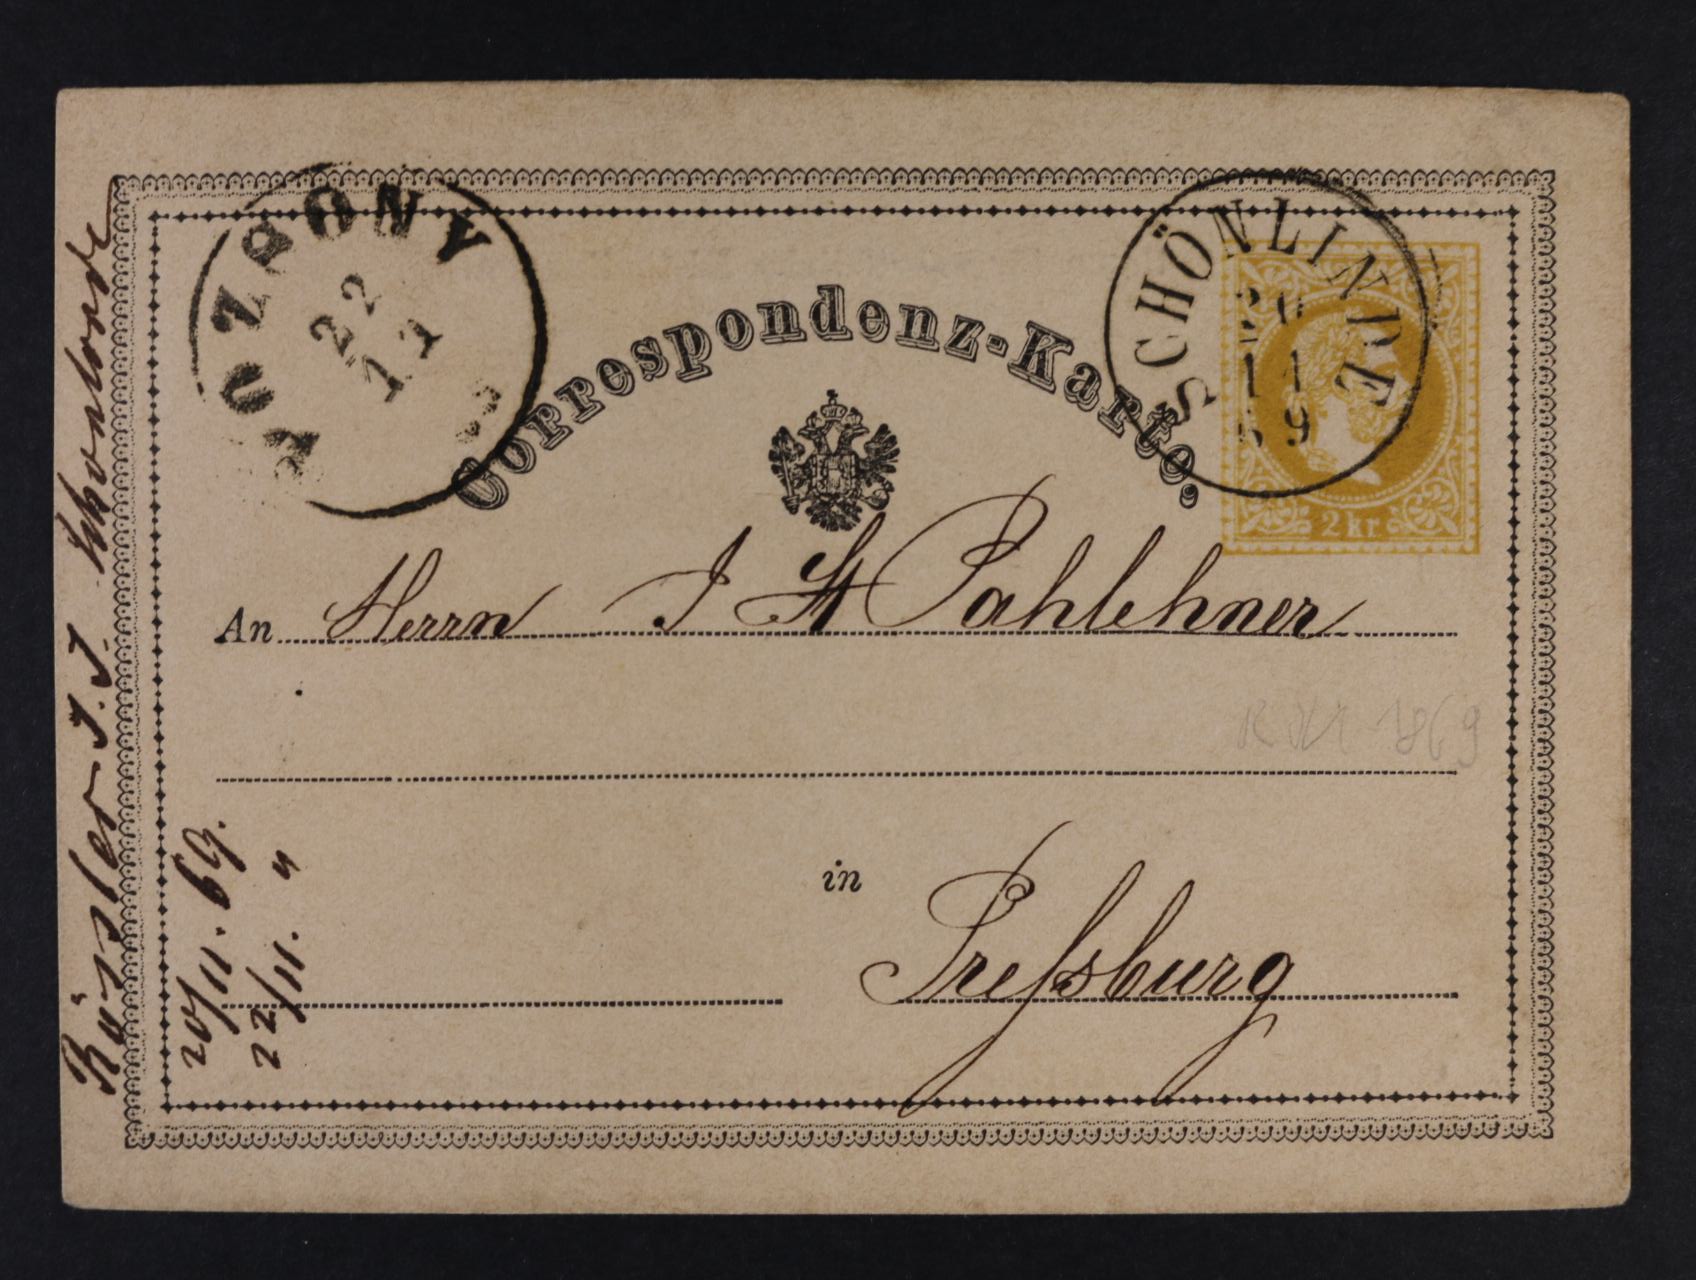 POZSONY
22
11
SCHÖNLINDE
20
11
69
Correspondenz-Karte.
2 kr.
An Herrn J St Pahlehner
in Preſsburg
20/11. 69.
22/11. "
1869